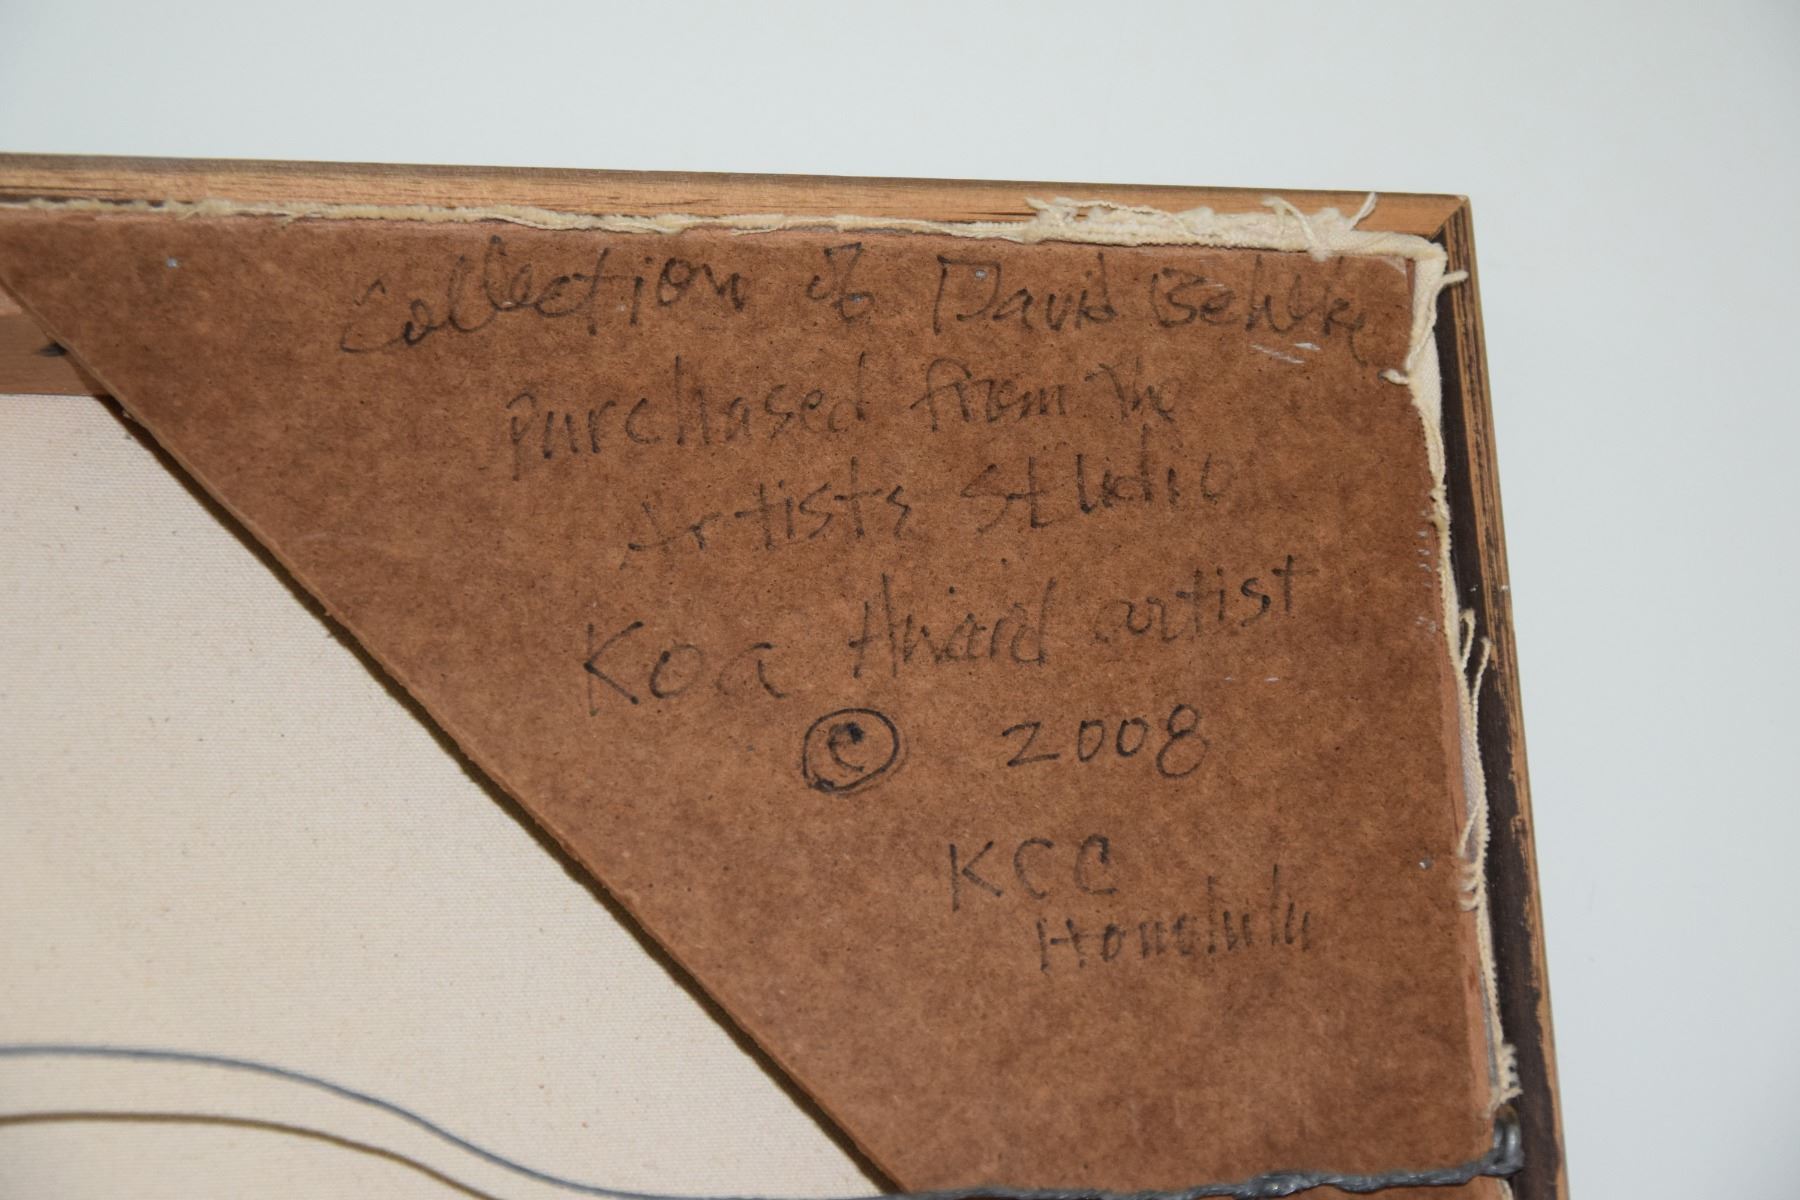 Collection of David Behlke
purchased from the
Artists Studio
Koa Award artist
© 2008
KCC
Honolulu